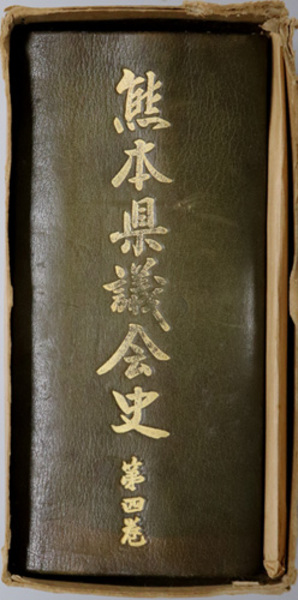 熊本県議会史 第四巻